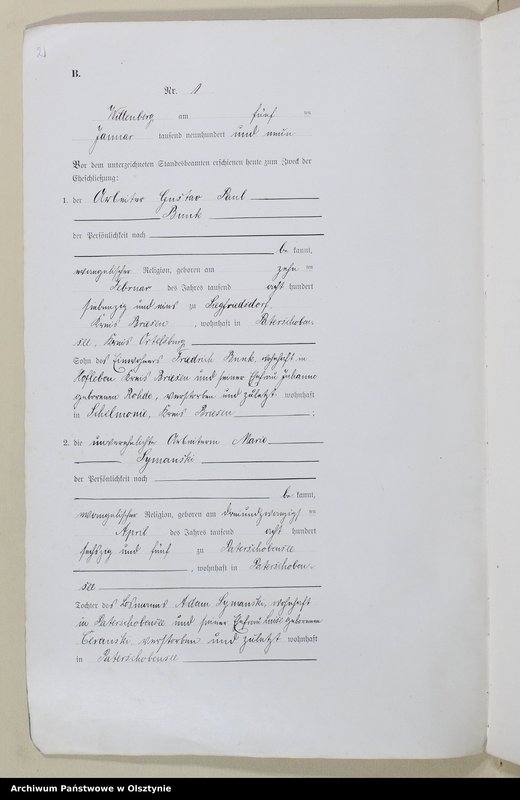 21
B.
Nr. 1
Willenberg am fünf ten
Januar tausend neunhundert und neun
Vor dem unterzeichneten Standesbeamten erschienen heute zum Zweck der
Eheschließung:
1. der Arbeiter Gustav Paul
Bunk
der Persönlichkeit nach
be kannt,
evangelischer Religion, geboren am zehn ten
Februar des Jahres tausend acht hundert
siebenzig und eins zu Siegfriedsdorf,
Kreis Briesen, wohnhaft in Paterschoben-
see, Kreis Ortelsburg
Sohn des Einwohners Friedrich Bunk, wohnhaft in
Hofleben Kreis Briesen und seiner Ehefrau Johanne
geborenen Rohde, verstorben und zuletzt wohnhaft
in Kreis Briesen ;
2. die unverehelichte Arbeiterin Marie
Symanski
der Persönlichkeit nach
be kannt,
evangelischer Religion, geboren am dreiundzwanzigs ten
April des Jahres tausend acht hundert
sechszig und fünf zu Paterschobensee
, wohnhaft in Paterschoben-
see
Tochter des Losmanns Adam Symanski, wohnhaft
in Paterschobensee und seiner Ehefrau geborenen
verstorben und zuletzt wohnhaft
in Paterschobensee
Archiwum Państwowe w Olsztynie